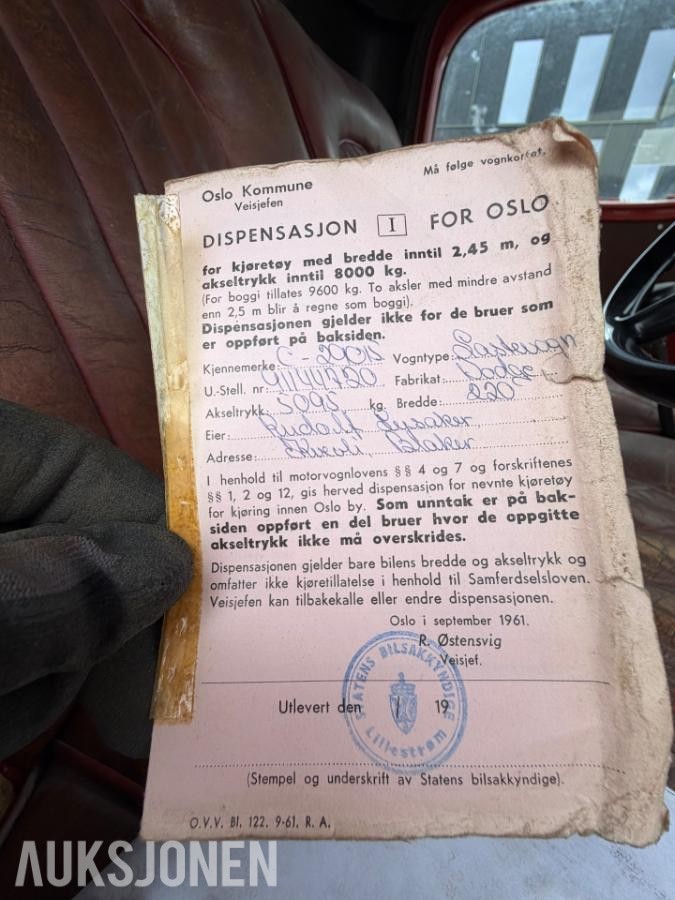 Oslo Kommune
Veisjefen
Må følge vognkortet.
DISPENSASJON I FOR OSLO
for kjøretøy med bredde inntil 2,45 m, og
akseltrykk inntil 8000 kg.
(For boggi tillates 9600 kg. To aksler med mindre avstand
enn 2,5 m blir å regne som boggi).
Dispensasjonen gjelder ikke for de bruer som
er oppført på baksiden.
Kjennemerke: Vogntype: Lastevogn
U.-Stell. nr: 91144720 Fabrikat: Dodge
Akseltrykk: 5095 kg. Bredde: 220
Eier: Rudolf Lysaker
Adresse: Blaker
I henhold til motorvognlovens §§ 4 og 7 og forskriftenes
§§ 1, 2 og 12, gis herved dispensasjon for nevnte kjøretøy
for kjøring innen Oslo by. Som unntak er på bak-
siden oppført en del bruer hvor de oppgitte
akseltrykk ikke må overskrides.
Dispensasjonen gjelder bare bilens bredde og akseltrykk og
omfatter ikke kjøretillatelse i henhold til Samferdselsloven.
Veisjefen kan tilbakekalle eller endre dispensasjonen.
Oslo i september 1961.
R. Østensvig
Veisjef.
STATENS BILSAKKYNDIGE
Lillestrøm
Utlevert den / 19
(Stempel og underskrift av Statens bilsakkyndige).
O.V.V. Bl. 122. 9-61. R. A.
AUKSJONEN